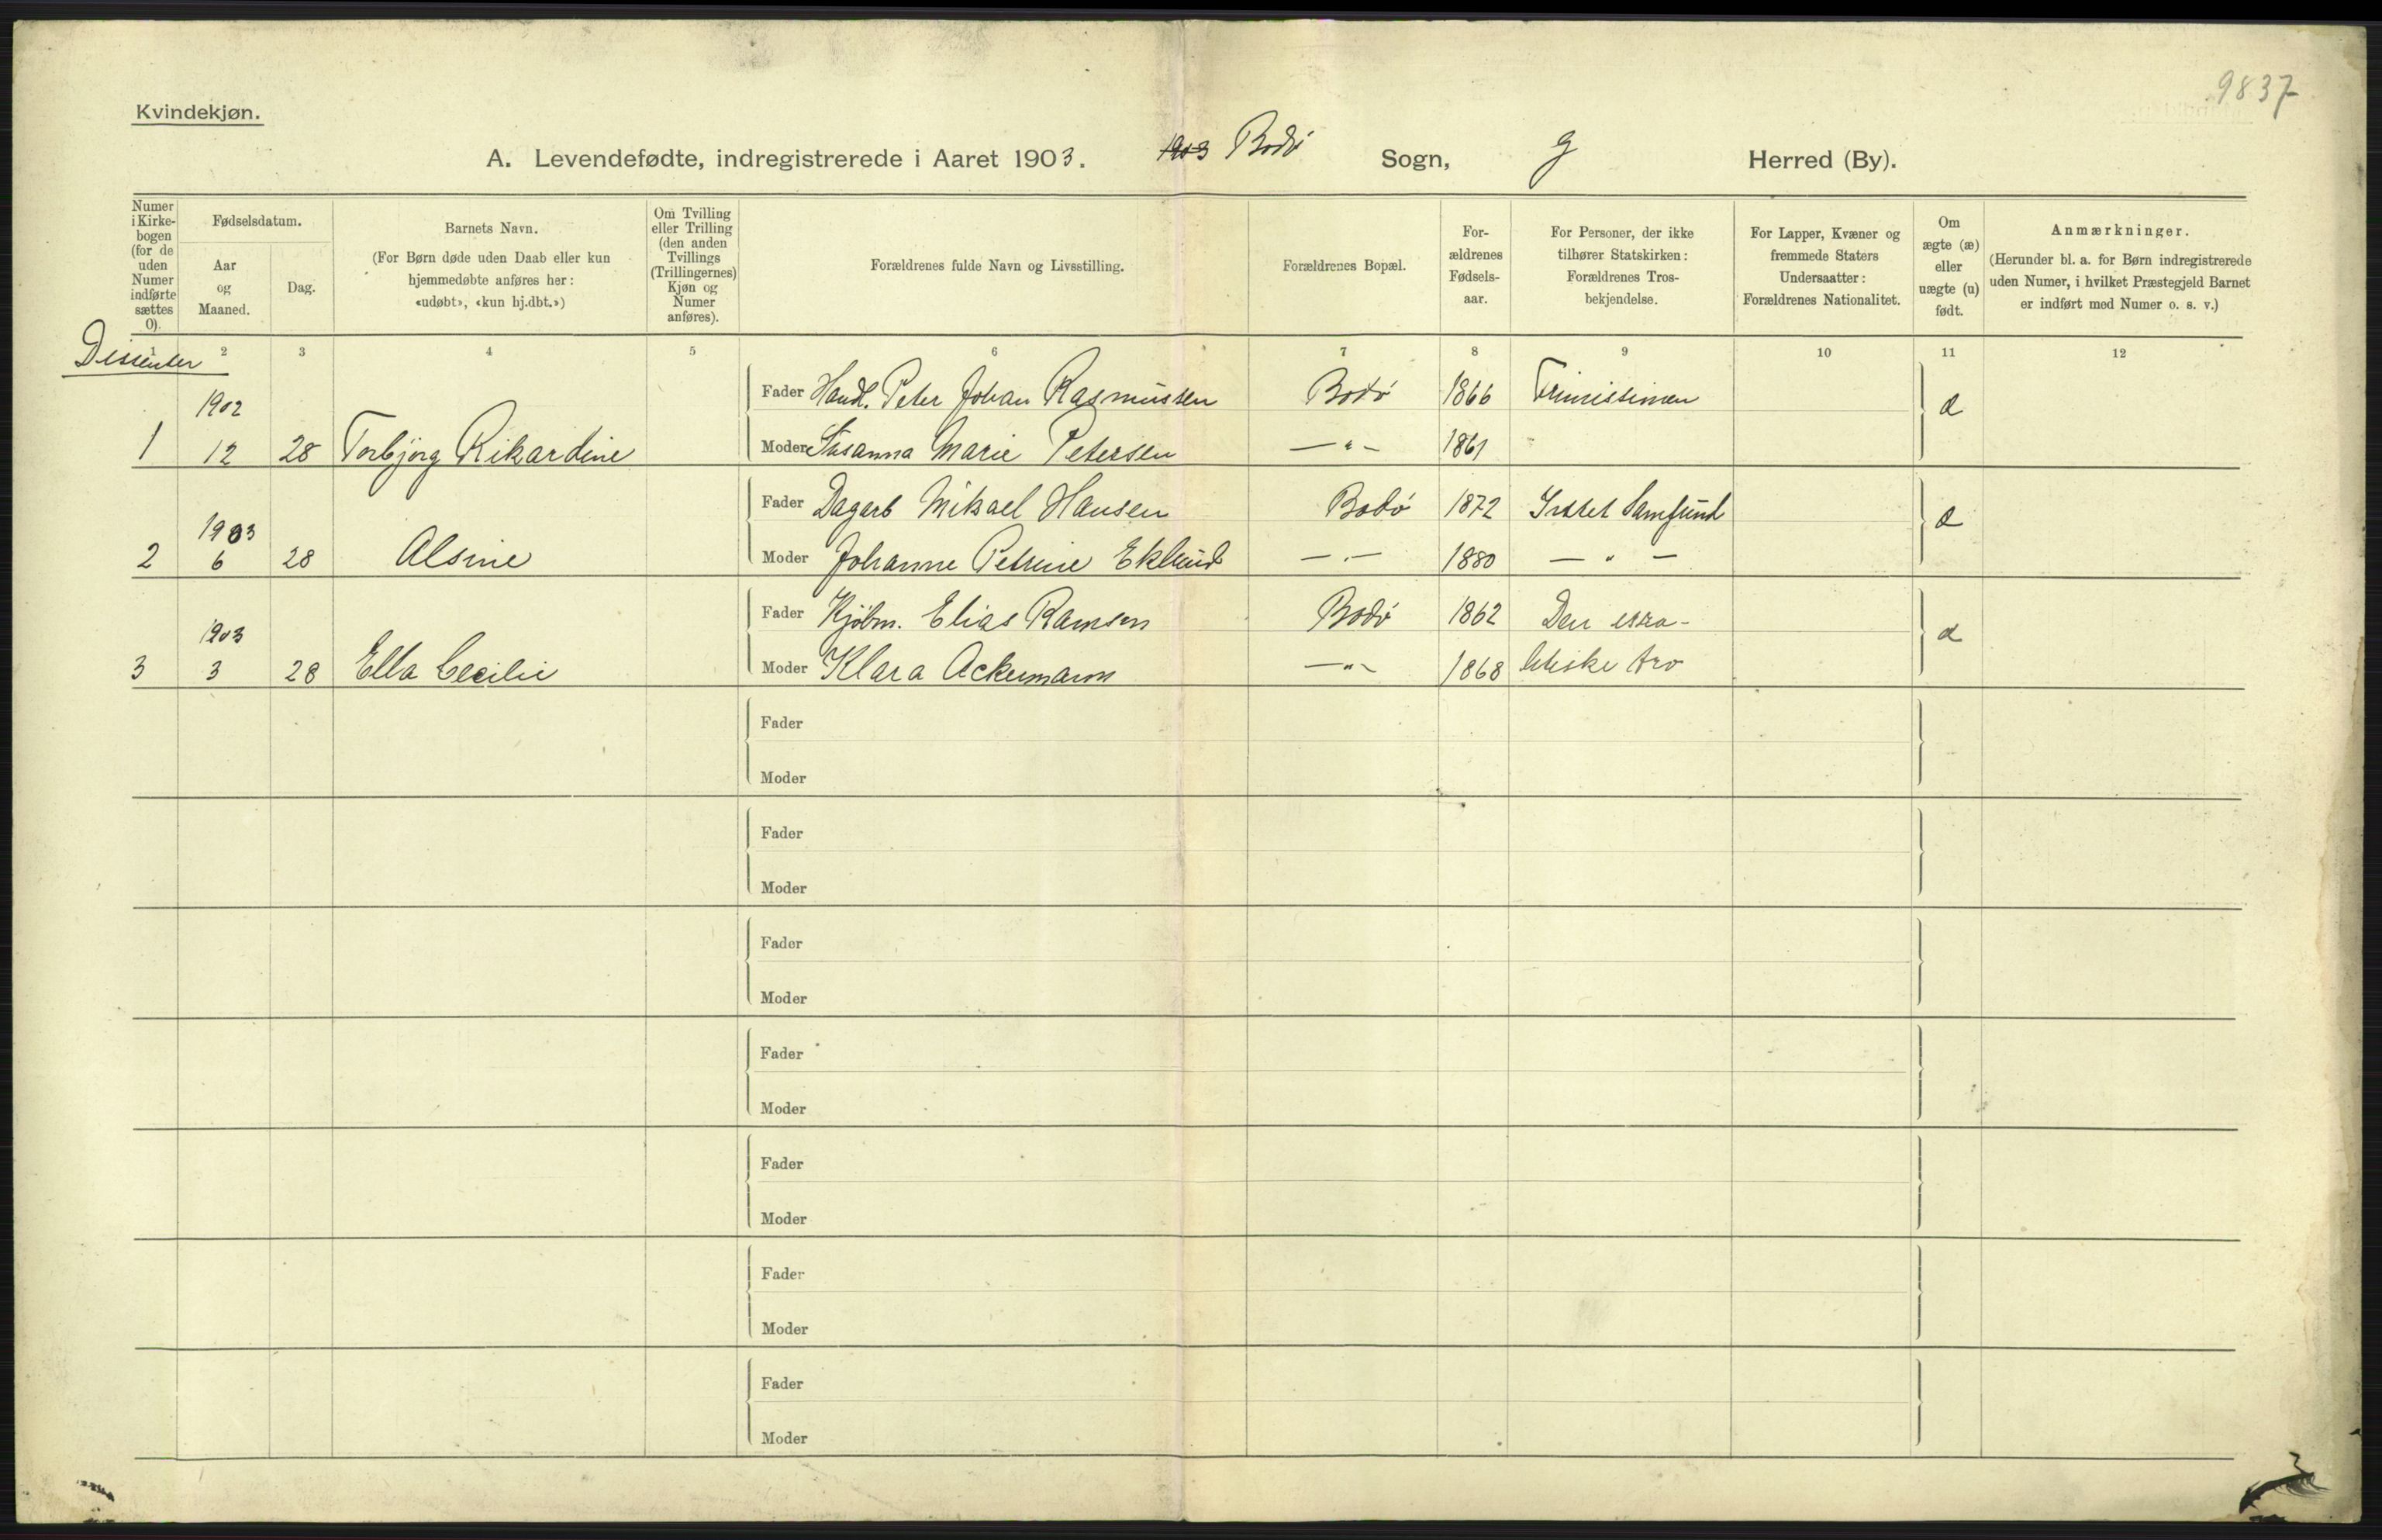 9837
Kvindekjøn.
A. Levendefødte, indregistrerede i Aaret 1903. 1903 Bodø Sogn, Herred (By).
Numer i Kirke-bogen (for de uden Numer indførte sættes 0).
Fødselsdatum.
Aar og Maaned.
Dag.
Barnets Navn.
(For Børn døde uden Daab eller kun
hjemmedøbte anføres her:
«udøbt», «kun hj.dbt.»)
Om Tvilling
eller Trilling
(den anden
Tvillings
(Trillingernes)
Kjøn og
Numer
anføres).
Forældrenes fulde Navn og Livsstilling.
Forældrenes Bopæl.
For-
ældrenes
Fødsels-
aar.
For Personer, der ikke
tilhører Statskirken:
Forældrenes Tros-
bekjendelse.
For Lapper, Kvæner og
fremmede Staters
Undersaatter:
Forældrenes Nationalitet.
Om
ægte (æ)
eller
uægte (u)
født.
Anmærkninger.
(Herunder bl. a. for Børn indregistrerede
uden Numer, i hvilket Præstegjeld Barnet
er indført med Numer o. s. v.)
1 2 3 4 5 6 7 8 9 10 11 12
Dissenter
1902
Fader Handl. Peter Johan Rasmussen Bodø 1866 æ
1 12 28 Torbjørg Rikardine Moder Susanna Marie Petersen —"— 1861
1903
Fader Dagarb Mikael Hansen Bodø 1872 Samfund æ
2 6 28 Alsine Moder Johanne Petrine Eklund —"— 1880 —"—
1903
Fader Kjøbm. Elias Ramson Bodø 1862 Den isra- æ
3 3 28 Ella Cecilie Moder Klara Ackermann —"— 1868 litiske tro
Fader
Moder
Fader
Moder
Fader
Moder
Fader
Moder
Fader
Moder
Fader
Moder
Fader
Moder